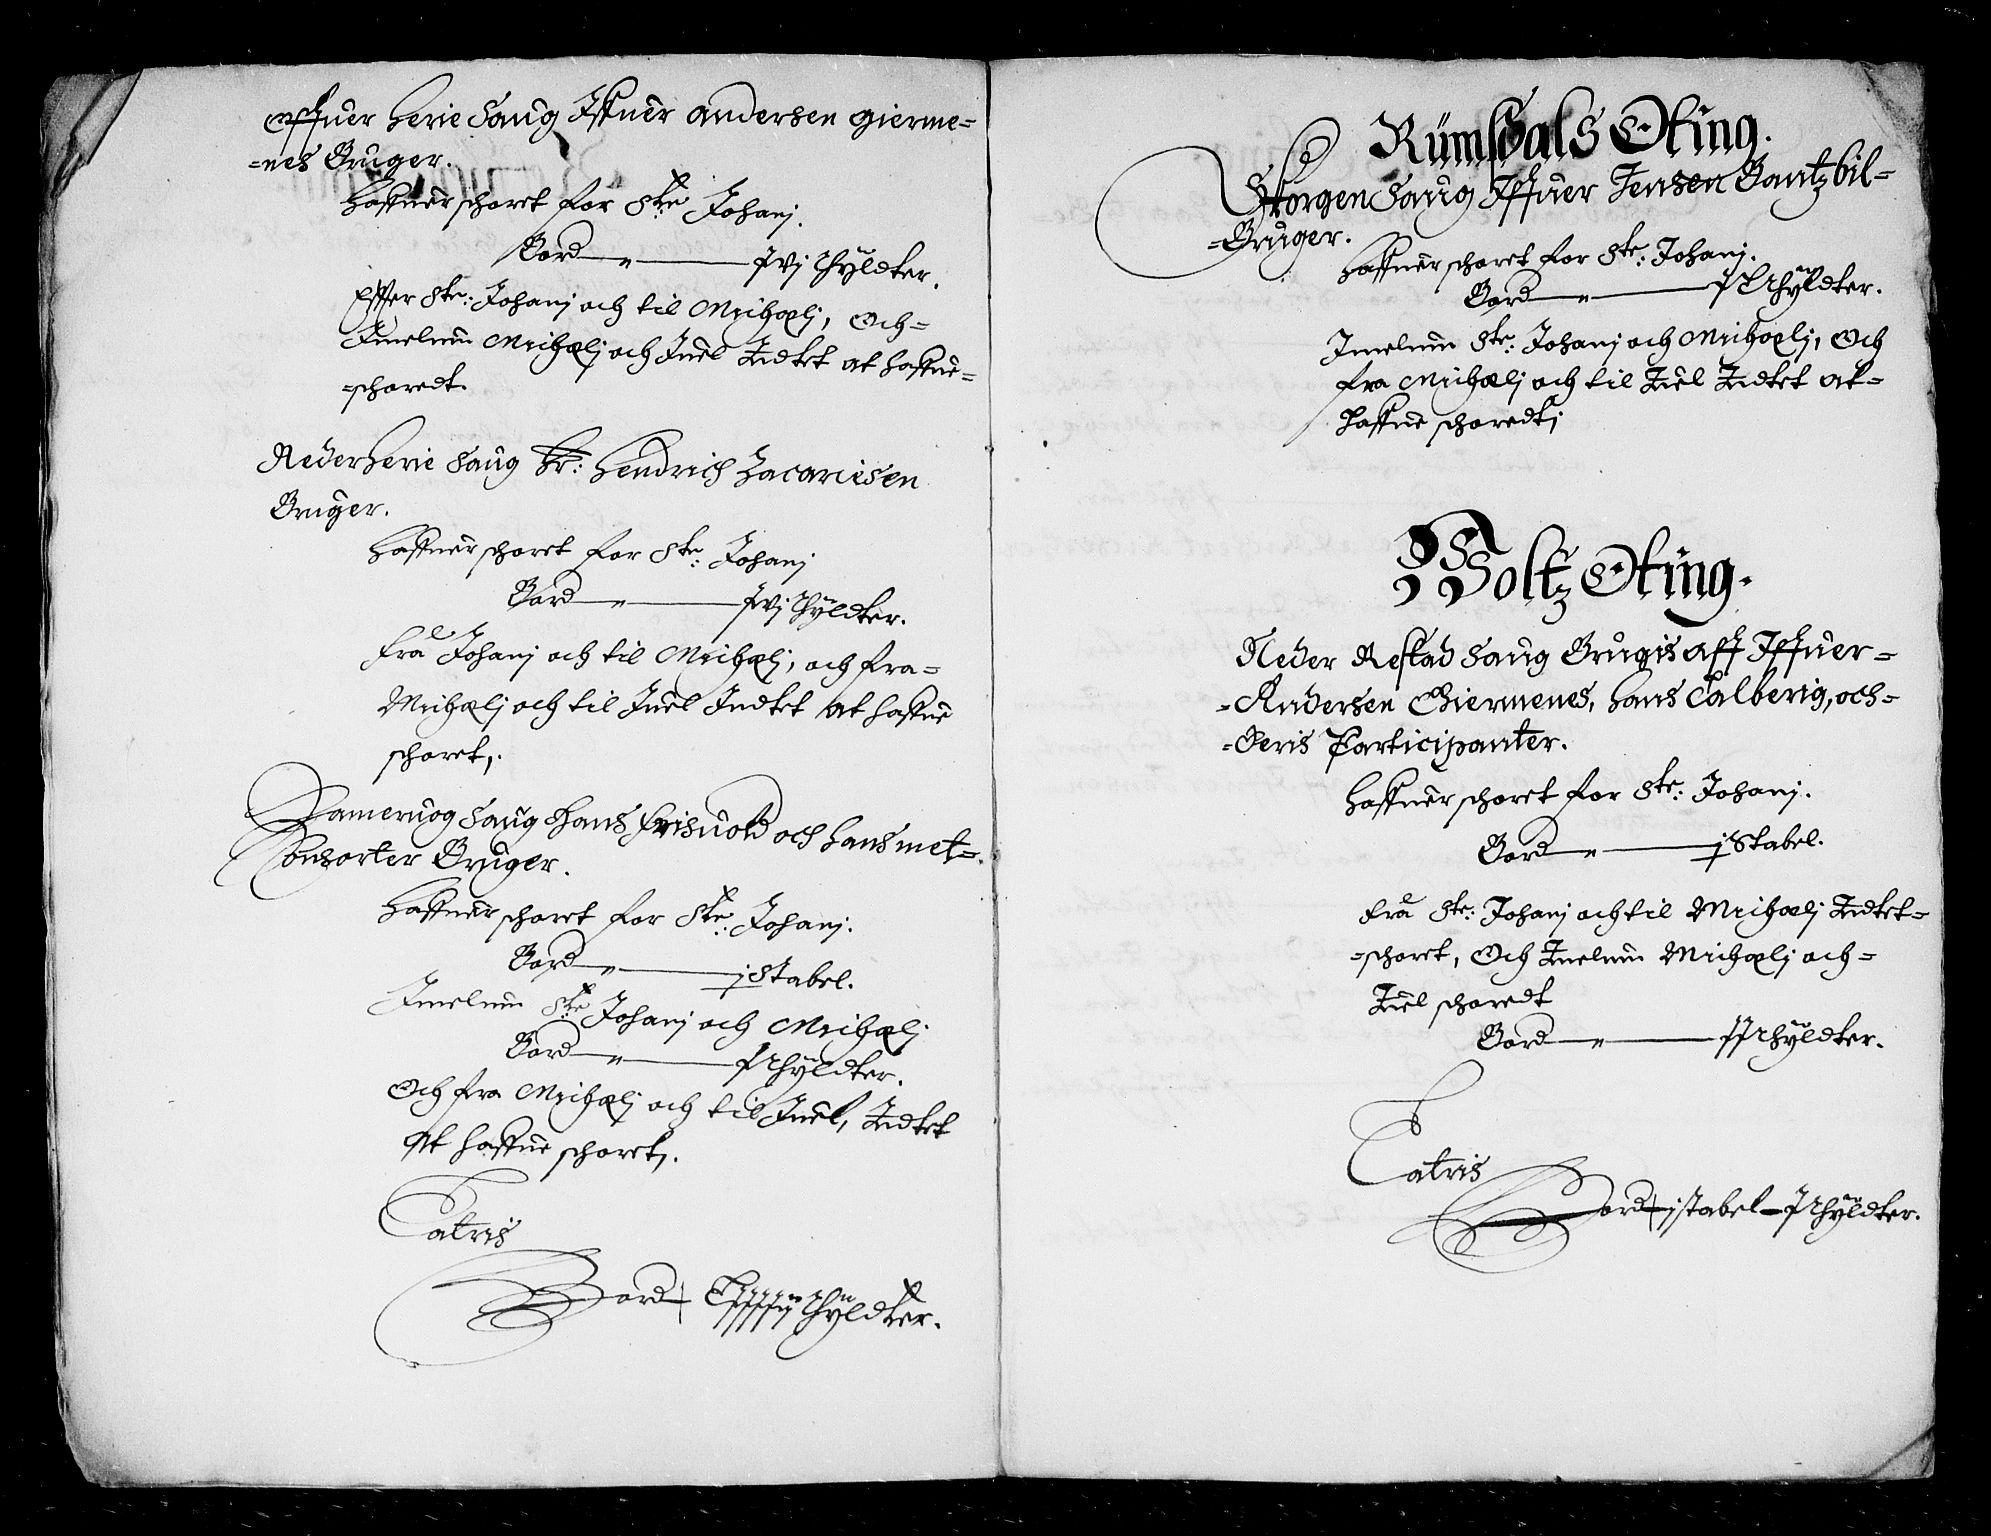 Offuer Herie Saug Iffuer Andersen Gierme=
=nes Bruger.
Haffuer schoret for Ste: Johanj.
Bord — xvj Thyldter.
Effter Ste: Johanj och til Michaelj, Och=
Imelum Michaelj och Juel Indtet at haffue=
=schoredt.
Neder Herie Saug Hr: Hendrich Zacariesen
Bruger.
Haffuer schoret for Ste: Johanj
Bord — xvj Thyldter.
Fra Johanj och til Michaelj, och fra=
Michaelj och til Juel Indtet at haffue
schoret,.
Hameruog Saug Hans Frisuold och hans met=
Consorter Bruger.
Haffuer schoret for Ste: Johanj.
Bord — j Stabel.
Imelum Ste: Johanj och Michaelj
Bord — Thyldter.
Och fra Michaelj och til Juel, Indtet
at haffue schoret,.
Latris
Bord Thyldter.
Rumsdals Oting.
Storgen Saug Iffuer Jensen Bantzbil=
=Bruger.
Haffuer schoret for Ste: Johanj.
Bord — Thyldter.
Imelum Ste: Johanj och Michaelj, Och
fra Michaelj och til Juel Indtet at=
haffue schoredt;
Woltz Oting.
Neder Restad Saug Brugis aff Iffuer=
=Andersen Giermenes, Hans Calberig, och=
=Deris Participanter.
Haffuer schoret for Ste: Johanj.
Bord — j Stabel.
Fra Ste: Johanj och til Michaelj Indtet=
=schoret, Och Imelum Michaelj och=
Juel schoredt
Bord — Thyldter.
Latris
Bord j stabel — Thyldter.